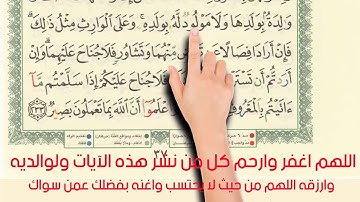 وَٰلِدَةُۢ بِوَلَدِهَا وَلَا مَوْلُودٞ لَّهُۥ بِوَلَدِهِۦۚ وَعَلَى ٱلْوَارِثِ مِثْلُ ذَٰلِكَۗ
فَإِنْ أَرَادَا فِصَالًا عَن وَتَشَاوُرٖ فَلَا جُنَاحَ عَلَيْهِمَاۗ وَإِنْ
أَرَدتُّمْ أَن تَسْتَرْ فَلَا جُنَاحَ عَلَيْكُمْ إِذَا سَلَّمْتُم مَّآ
ءَاتَيْتُم بِٱلْمَعْرُوفِ أَنَّ ٱللَّهَ بِمَا تَعْمَلُونَ بَصِيرٞ ٢٣٣
٣٧
اللهم اغفر وارحم كل من نشر هذه الآيات ولوالديه
وارزقه اللهم من حيث لا يحتسب واغنه بفضلك عمن سواك